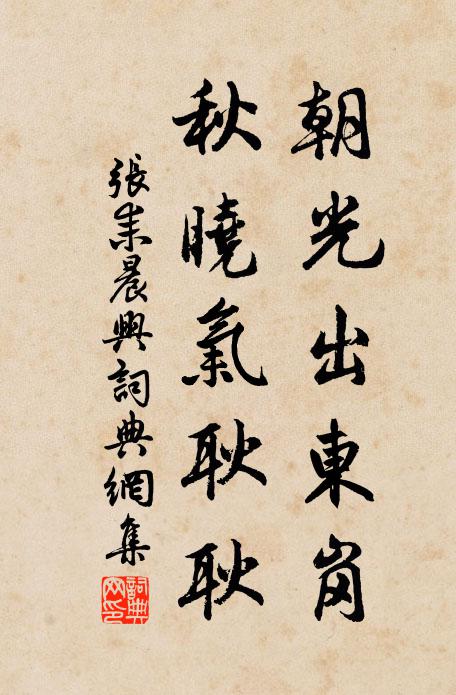 朝光出東崗
秋曉氣耿耿
張耒晨興詞典網集
詞典網印